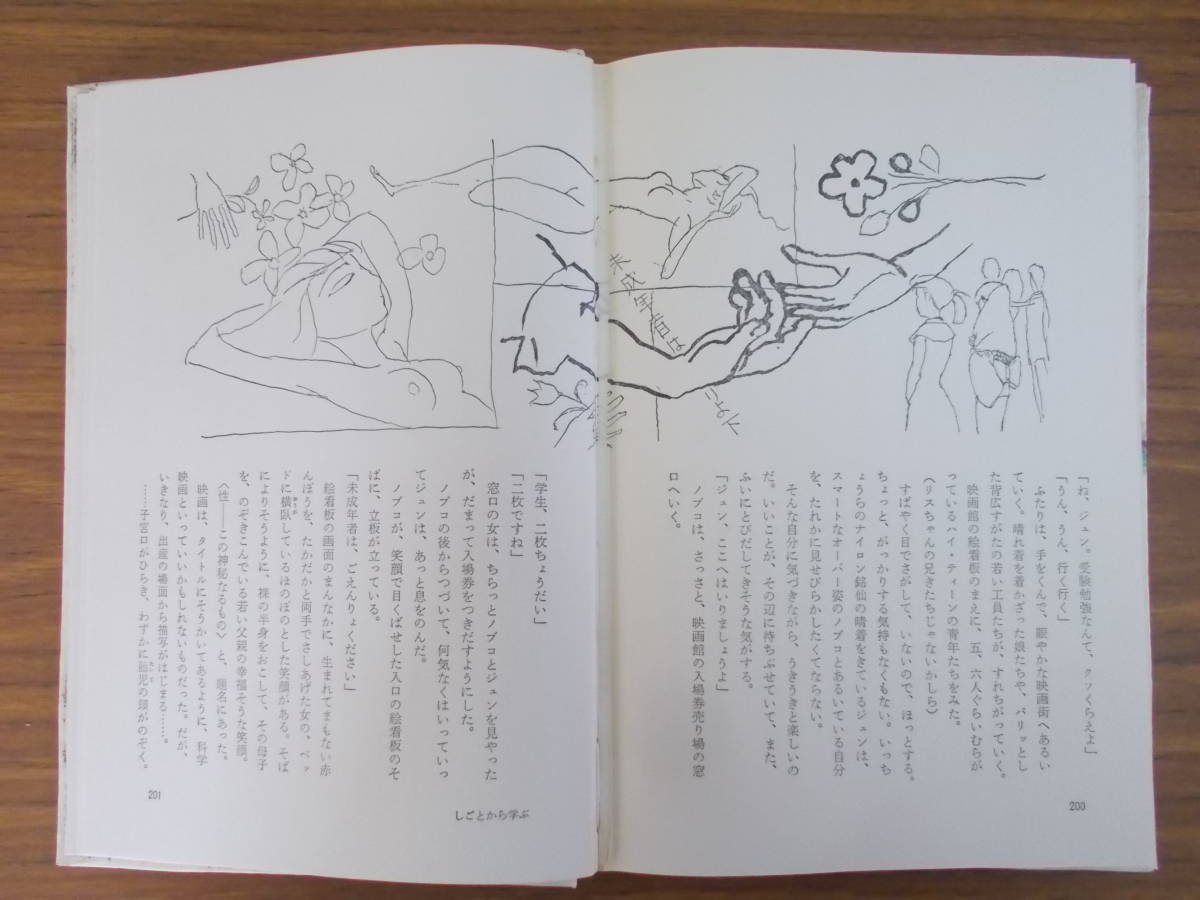 「ね、ジュン。受験勉強なんて、クソくらえよ」
「うん、うん、行く行く」
ふたりは、手をくんで、賑やかな映画街へあるい
ていく。晴れ着を着かざった娘たちや、パリッとし
た背広すがたの若い工員たちが、すれちがっていく。
映画館の絵看板のまえに、五、六人ぐらいむらが
っているハイ・ティーンの青年たちをみた。
〈リスちゃんの兄きたちじゃないかしら〉
すばやく目でさがして、いないので、ほっとする。
ちょっと、がっかりする気持もなくもない。いっち
ょうらのナイロン銘仙の晴着をきているジュンは、
スマートなオーバー姿のノブコとあるいている自分
を、たれかに見せびらかしたくてならない。
そんな自分に気づきながら、うきうきと楽しいの
だ。いいことが、その辺に待ちぶせていて、また、
ふいにとびだしてきそうな気がする。
「ジュン、ここへはいりましょうよ」
ノブコは、さっさと、映画館の入場券売り場の窓
口へいく。
200
未成年者は
「学生、二枚ちょうだい」
「二枚ですね」
窓口の女は、ちらっとノブコとジュンを見やった
が、だまって入場券をつきだすようにした。
ノブコの後からつづいて、何気なくはいっていっ
てジュンは、あっと息をのんだ。
ノブコが、笑顔で目くばせした入口の絵看板のそ
ばに、立板が立っている。
「未成年者は、ごえんりょください」
絵看板の画面のまんなかに、生まれてまもない赤
んぼうを、たかだかと両手でさしあげた女の、ベッ
ドに横臥しているほのぼのとした笑顔がある。そば
によりそうように、裸の半身をおこして、その母子
を、のぞきこんでいる若い父親の幸福そうな笑顔。
〈性――この神秘なるもの〉と、題名にあった。
映画は、タイトルにそうかいてあるように、科学
映画といっていいかもしれないものだった。だが、
いきなり、出産の場面から描写がはじまる……。
……子宮口がひらき、わずかに胎児の頭がのぞく。
201
しごとから学ぶ